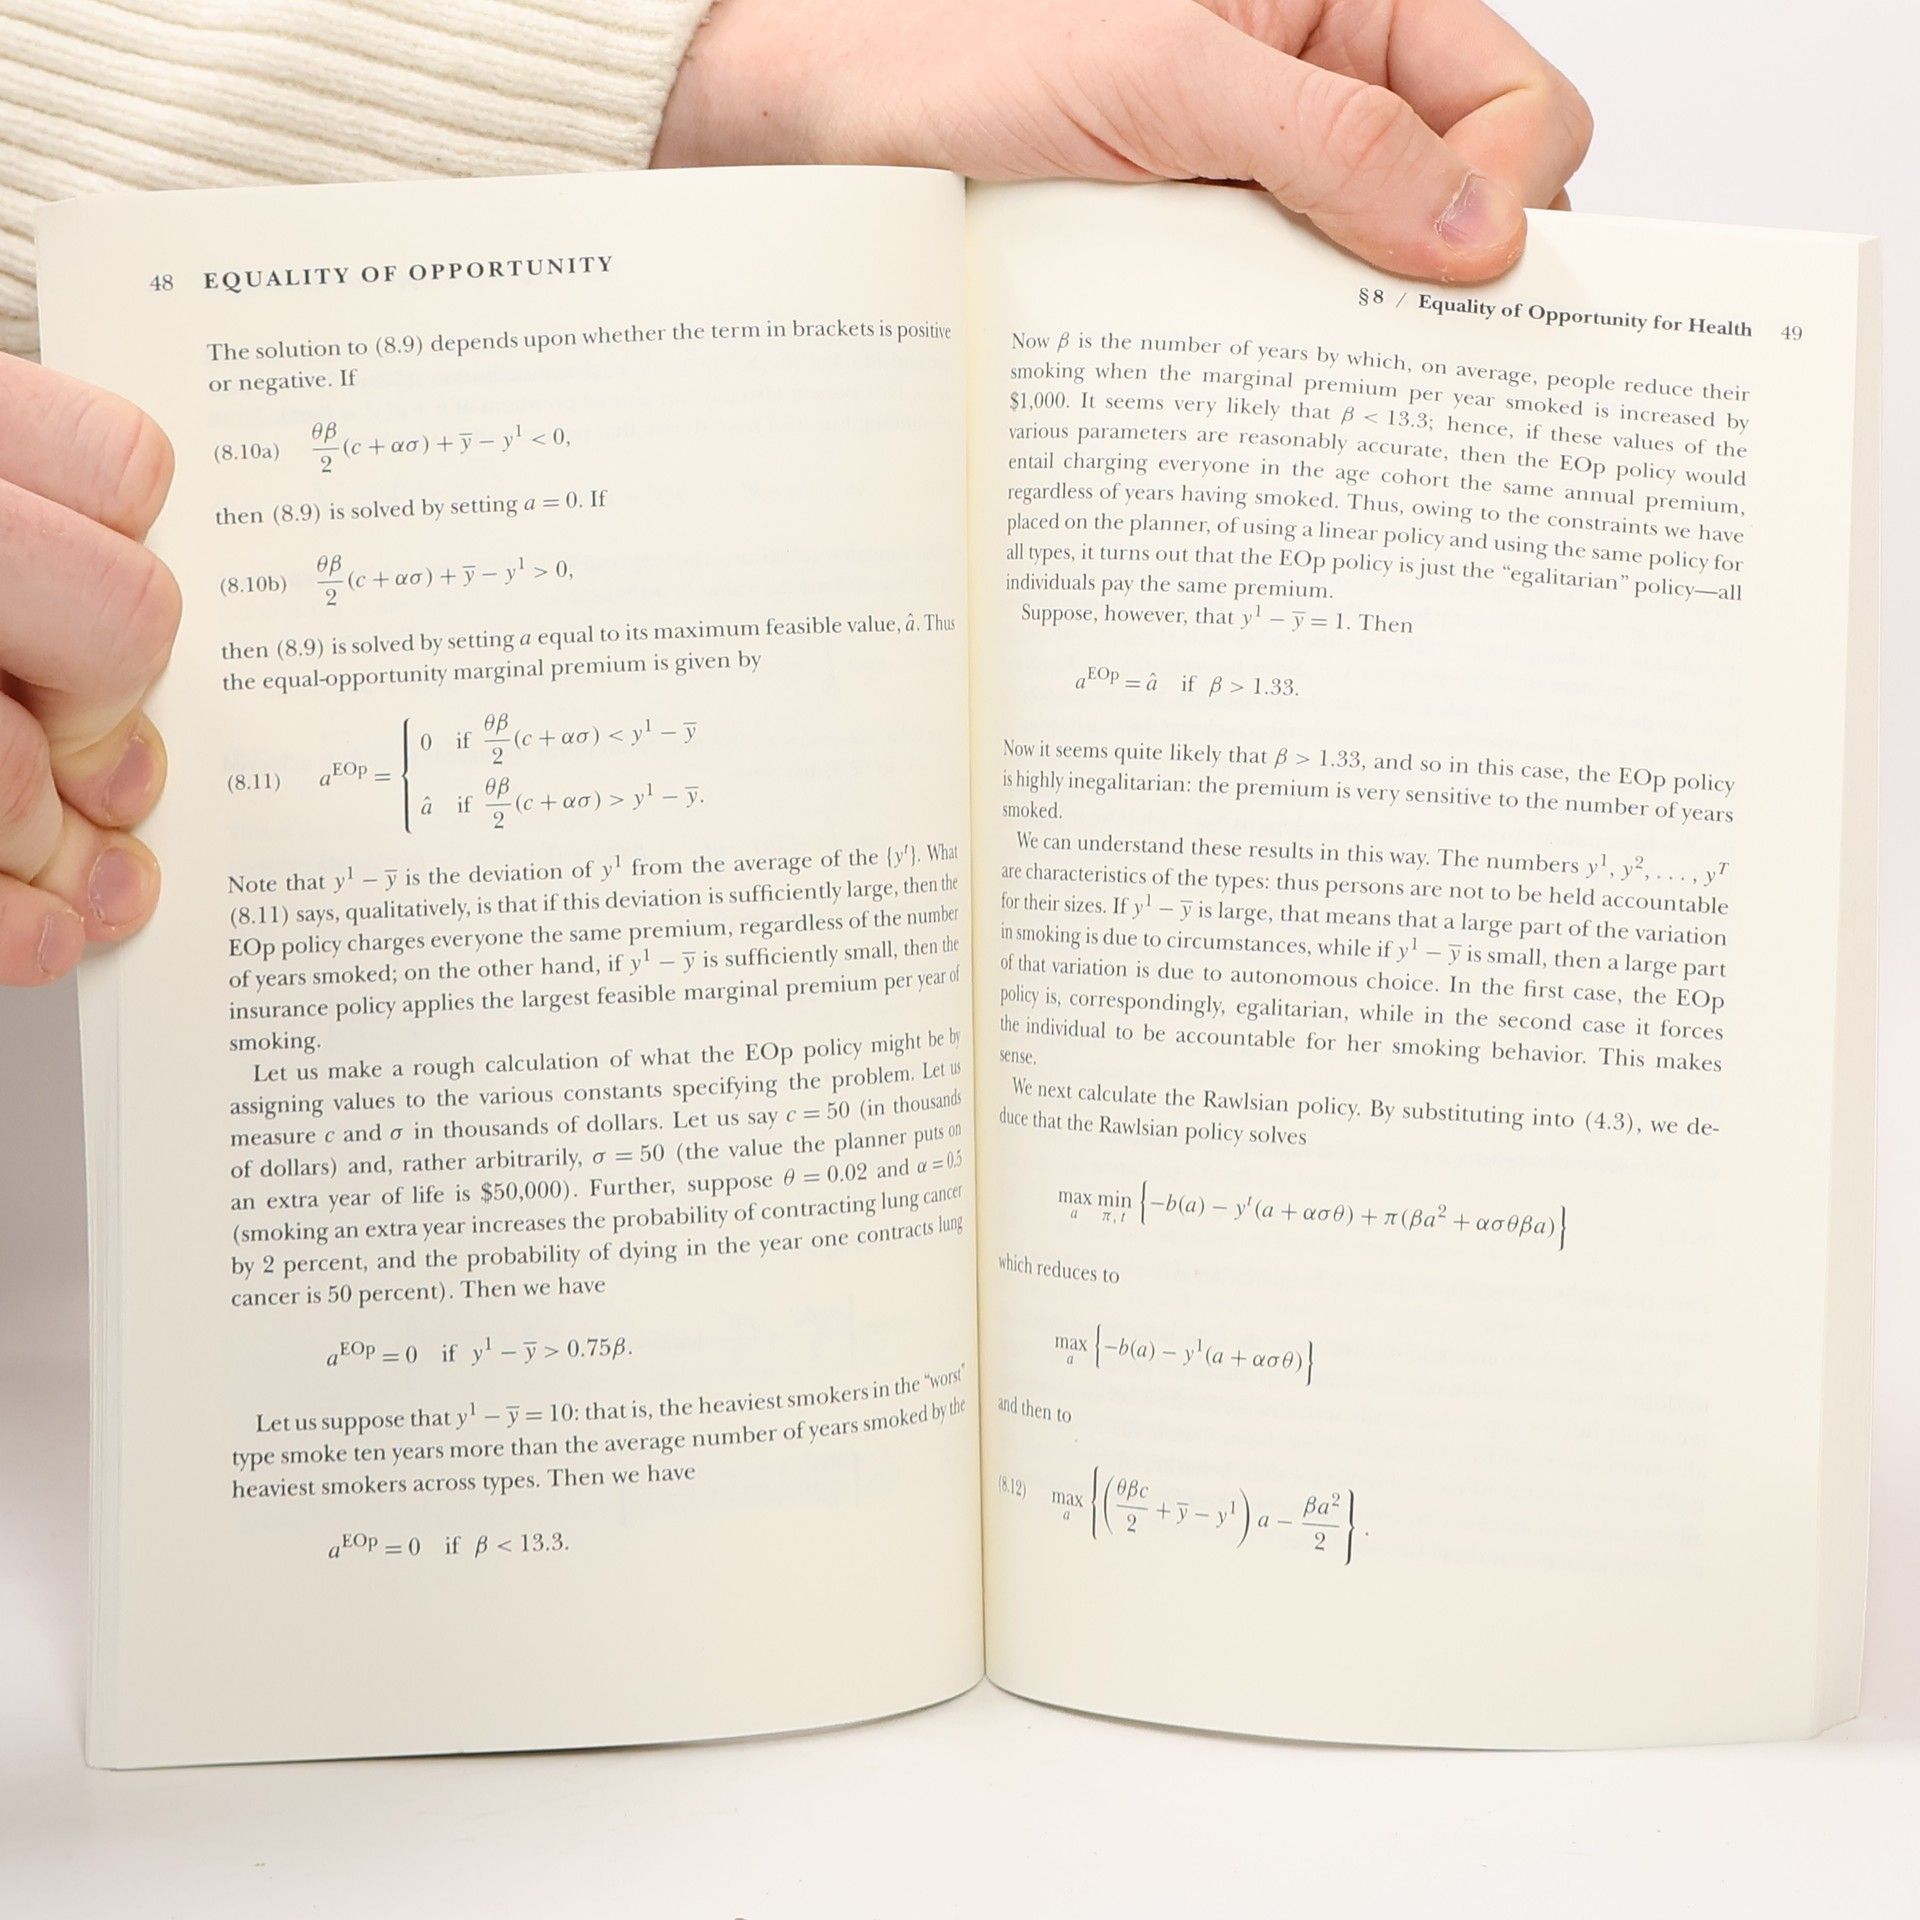 48 EQUALITY OF OPPORTUNITY
The solution to (8.9) depends upon whether the term in brackets is positive
or negative. If
(8.10a) θβ/2 (c + ασ) + ȳ − y¹ < 0,
then (8.9) is solved by setting a = 0. If
(8.10b) θβ/2 (c + ασ) + ȳ − y¹ > 0,
then (8.9) is solved by setting a equal to its maximum feasible value, â. Thus
the equal-opportunity marginal premium is given by
(8.11) a^EOp = { 0 if θβ/2 (c + ασ) < y¹ − ȳ
â if θβ/2 (c + ασ) > y¹ − ȳ.
Note that y¹ − ȳ is the deviation of y¹ from the average of the {yᵗ}. What
(8.11) says, qualitatively, is that if this deviation is sufficiently large, then the
EOp policy charges everyone the same premium, regardless of the number
of years smoked; on the other hand, if y¹ − ȳ is sufficiently small, then the
insurance policy applies the largest feasible marginal premium per year of
smoking.
Let us make a rough calculation of what the EOp policy might be by
assigning values to the various constants specifying the problem. Let us
measure c and σ in thousands of dollars. Let us say c = 50 (in thousands
of dollars) and, rather arbitrarily, σ = 50 (the value the planner puts on
an extra year of life is $50,000). Further, suppose θ = 0.02 and α = 0.5
(smoking an extra year increases the probability of contracting lung cancer
by 2 percent, and the probability of dying in the year one contracts lung
cancer is 50 percent). Then we have
a^EOp = 0 if y¹ − ȳ > 0.75β.
Let us suppose that y¹ − ȳ = 10: that is, the heaviest smokers in the “worst”
type smoke ten years more than the average number of years smoked by the
heaviest smokers across types. Then we have
a^EOp = 0 if β < 13.3.
§8 / Equality of Opportunity for Health 49
Now β is the number of years by which, on average, people reduce their
smoking when the marginal premium per year smoked is increased by
$1,000. It seems very likely that β < 13.3; hence, if these values of the
various parameters are reasonably accurate, then the EOp policy would
entail charging everyone in the age cohort the same annual premium,
regardless of years having smoked. Thus, owing to the constraints we have
placed on the planner, of using a linear policy and using the same policy for
all types, it turns out that the EOp policy is just the “egalitarian” policy—all
individuals pay the same premium.
Suppose, however, that y¹ − ȳ = 1. Then
a^EOp = â if β > 1.33.
Now it seems quite likely that β > 1.33, and so in this case, the EOp policy
is highly inegalitarian: the premium is very sensitive to the number of years
smoked.
We can understand these results in this way. The numbers y¹, y², . . . , yᵀ
are characteristics of the types: thus persons are not to be held accountable
for their sizes. If y¹ − ȳ is large, that means that a large part of the variation
in smoking is due to circumstances, while if y¹ − ȳ is small, then a large part
of that variation is due to autonomous choice. In the first case, the EOp
policy is, correspondingly, egalitarian, while in the second case it forces
the individual to be accountable for her smoking behavior. This makes
sense.
We next calculate the Rawlsian policy. By substituting into (4.3), we de-
duce that the Rawlsian policy solves
max_a min_π,t {−b(a) − yᵗ(a + ασθ) + π(βa² + ασθβa)}
which reduces to
max_a {−b(a) − y¹(a + ασθ)}
and then to
(8.12) max_a {(θβc/2 + ȳ − y¹) a − βa²/2}.